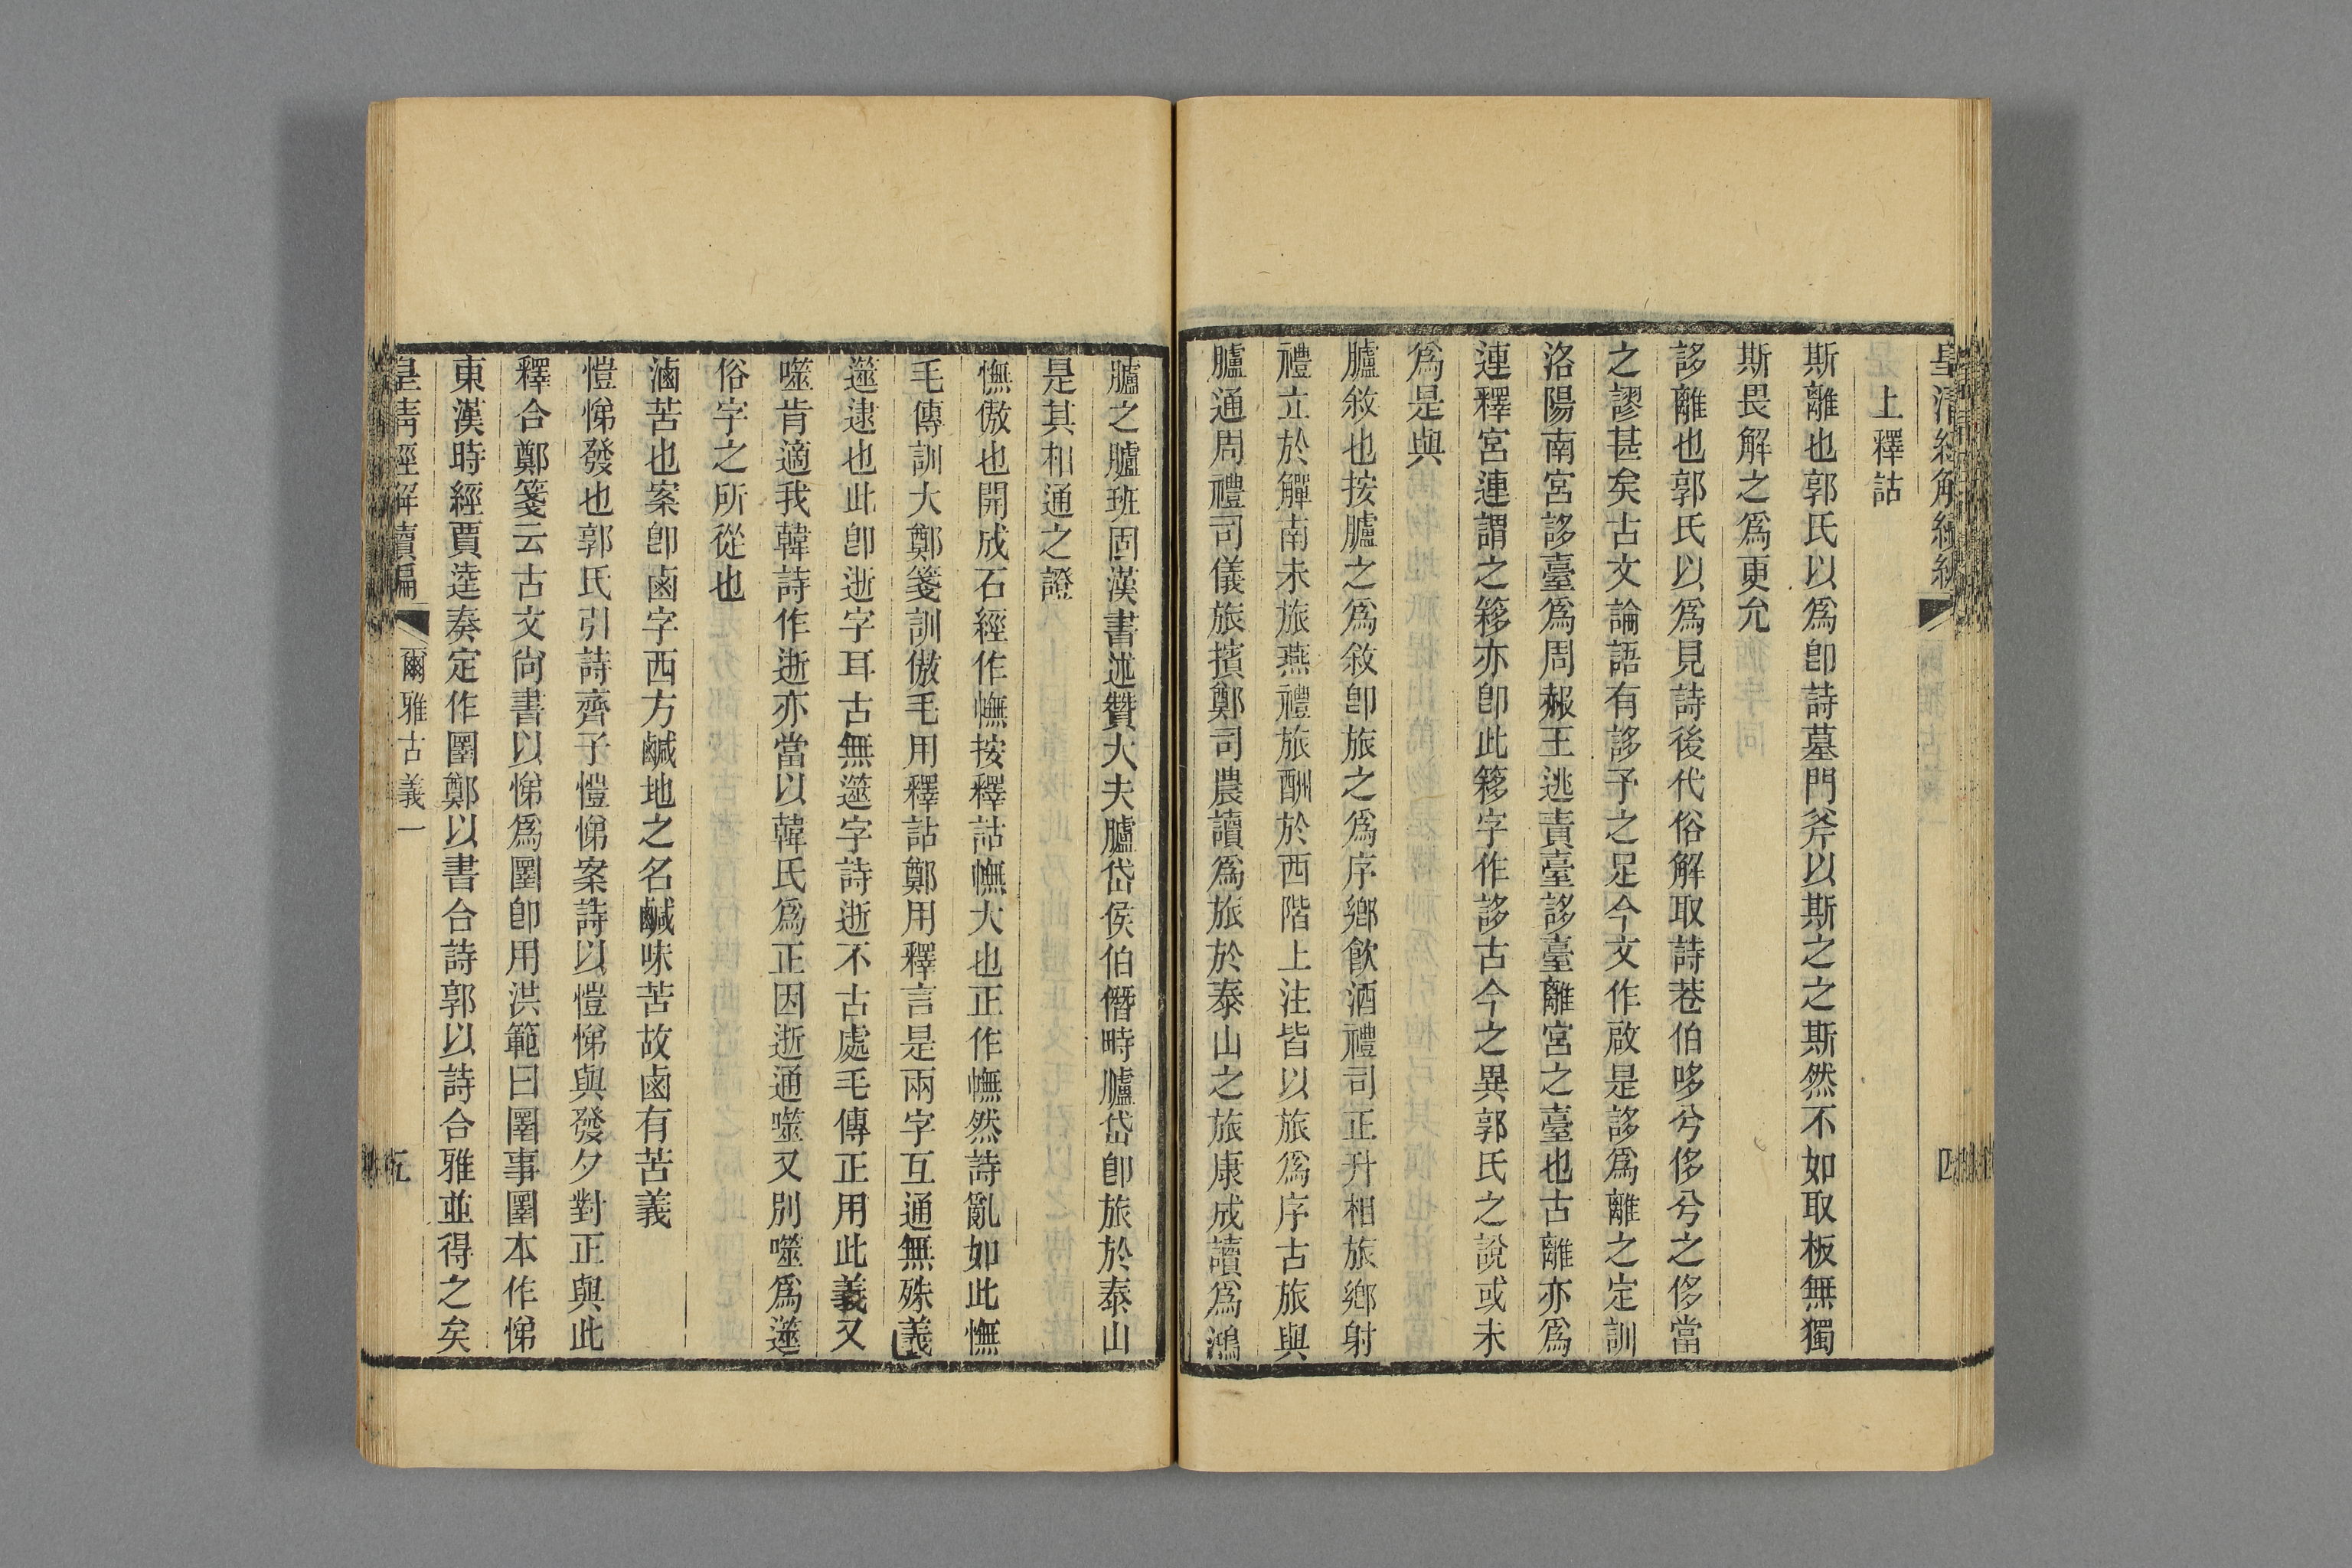 上釋詁
斯離也郭氏以爲卽詩墓門斧以斯之之斯然不如取板無獨
斯畏解之爲更允
誃離也郭氏以爲見詩後代俗解取詩巷伯哆兮侈兮之侈當
之謬甚矣古文論語有誃予之足今文作啟是誃爲離之定訓
洛陽南宮誃臺爲周赧王逃責臺誃臺離宮之臺也古離亦爲
連釋宮連謂之簃亦卽此簃字作誃古今之異郭氏之說或未
爲是與
臚敘也按臚之爲敘卽旅之爲序鄉飲酒禮司正升相旅鄉射
禮立於觶南未旅燕禮旅酬於西階上注皆以旅爲序古旅與
臚通周禮司儀旅擯鄭司農讀爲旅於泰山之旅康成讀爲鴻
臚之臚班固漢書述贊大夫臚岱侯伯僭畤臚岱卽旅於泰山
是其相通之證
憮傲也開成石經作幠按釋詁幠大也正作幠然詩亂如此憮
毛傳訓大鄭箋訓傲毛用釋詁鄭用釋言是兩字互通無殊義
遾逮也此卽逝字耳古無遾字詩逝不古處毛傳正用此義又
噬肯適我韓詩作逝亦當以韓氏爲正因逝通噬又別噬爲遾
俗字之所從也
滷苦也案卽鹵字西方鹹地之名鹹味苦故鹵有苦義
愷悌發也郭氏引詩齊子愷悌案詩以愷悌與發夕對正與此
釋合鄭箋云古文尙書以悌爲圛卽用洪範曰圛事圛本作悌
東漢時經賈逵奏定作圛鄭以書合詩郭以詩合雅並得之矣
皇淸經解續編
爾雅古義一
五